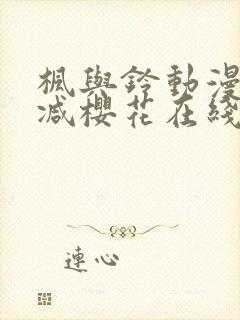 楓與鈴動漫
減櫻花在綫
連心